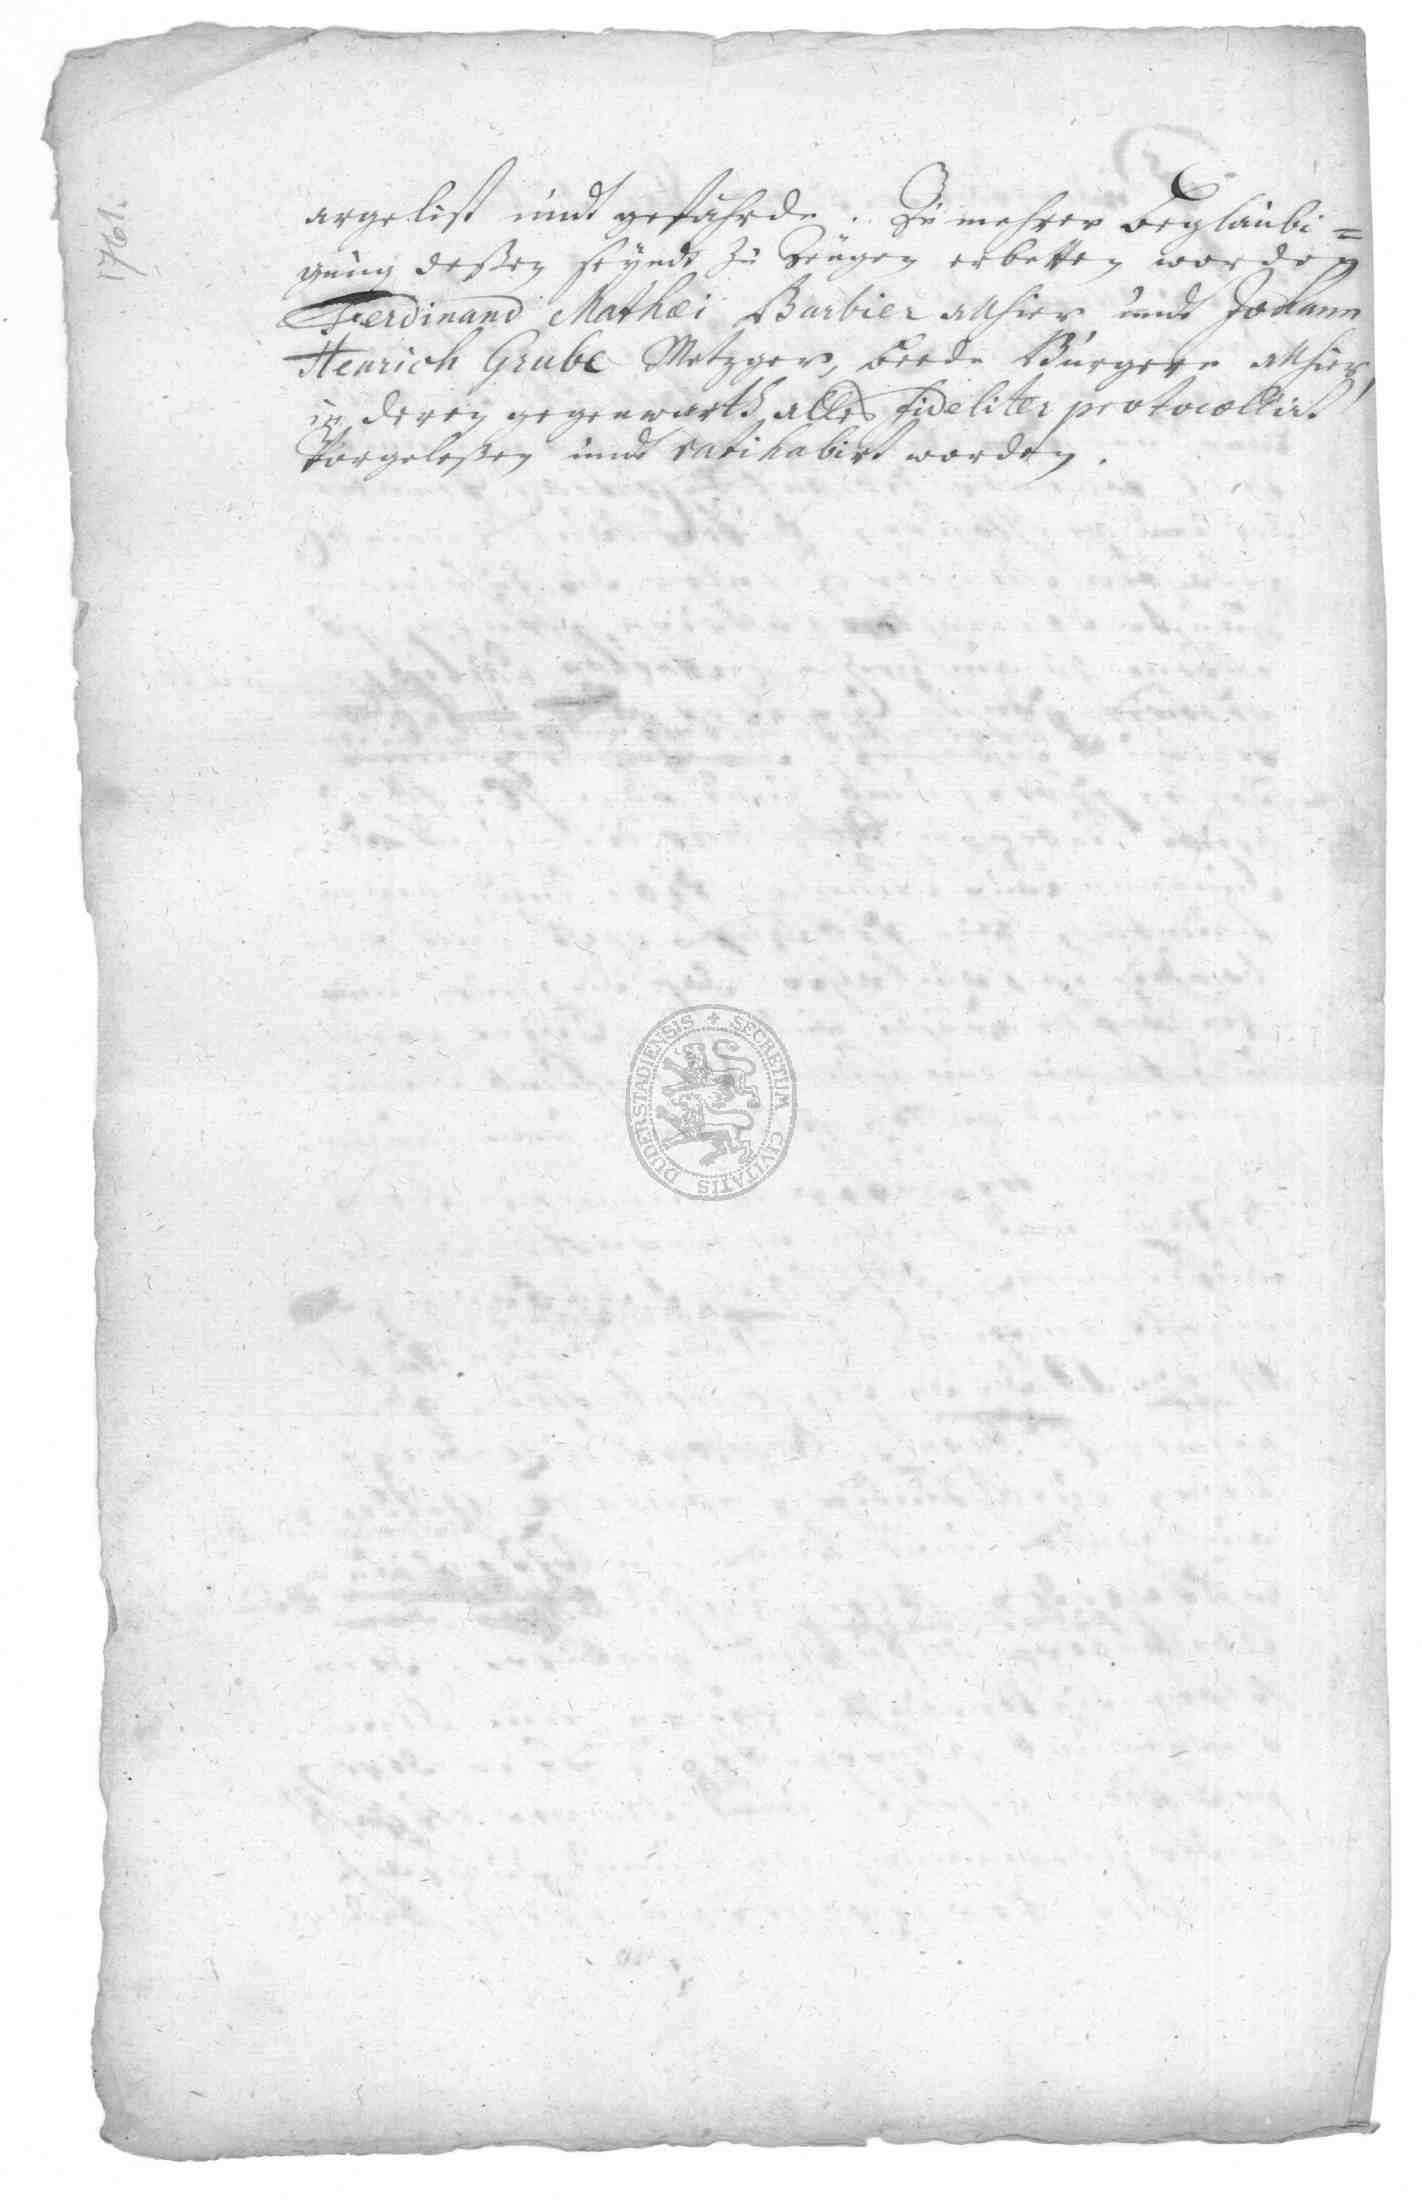 1761.
argelist undt gefährde. Zu mehrer beglaubi=
gung deßen seyndt zu Zeugen erbetten worden
Ferdinand Mathæi Barbier allhier undt Johann
Henrich Grube Metzger, beede Bürgere allhier,
in deren gegenwarth alles fideliter protocollirt
vorgeleßen undt ratihabirt worden.
SECRETUM CIVITATIS DUDERSTADIENSIS